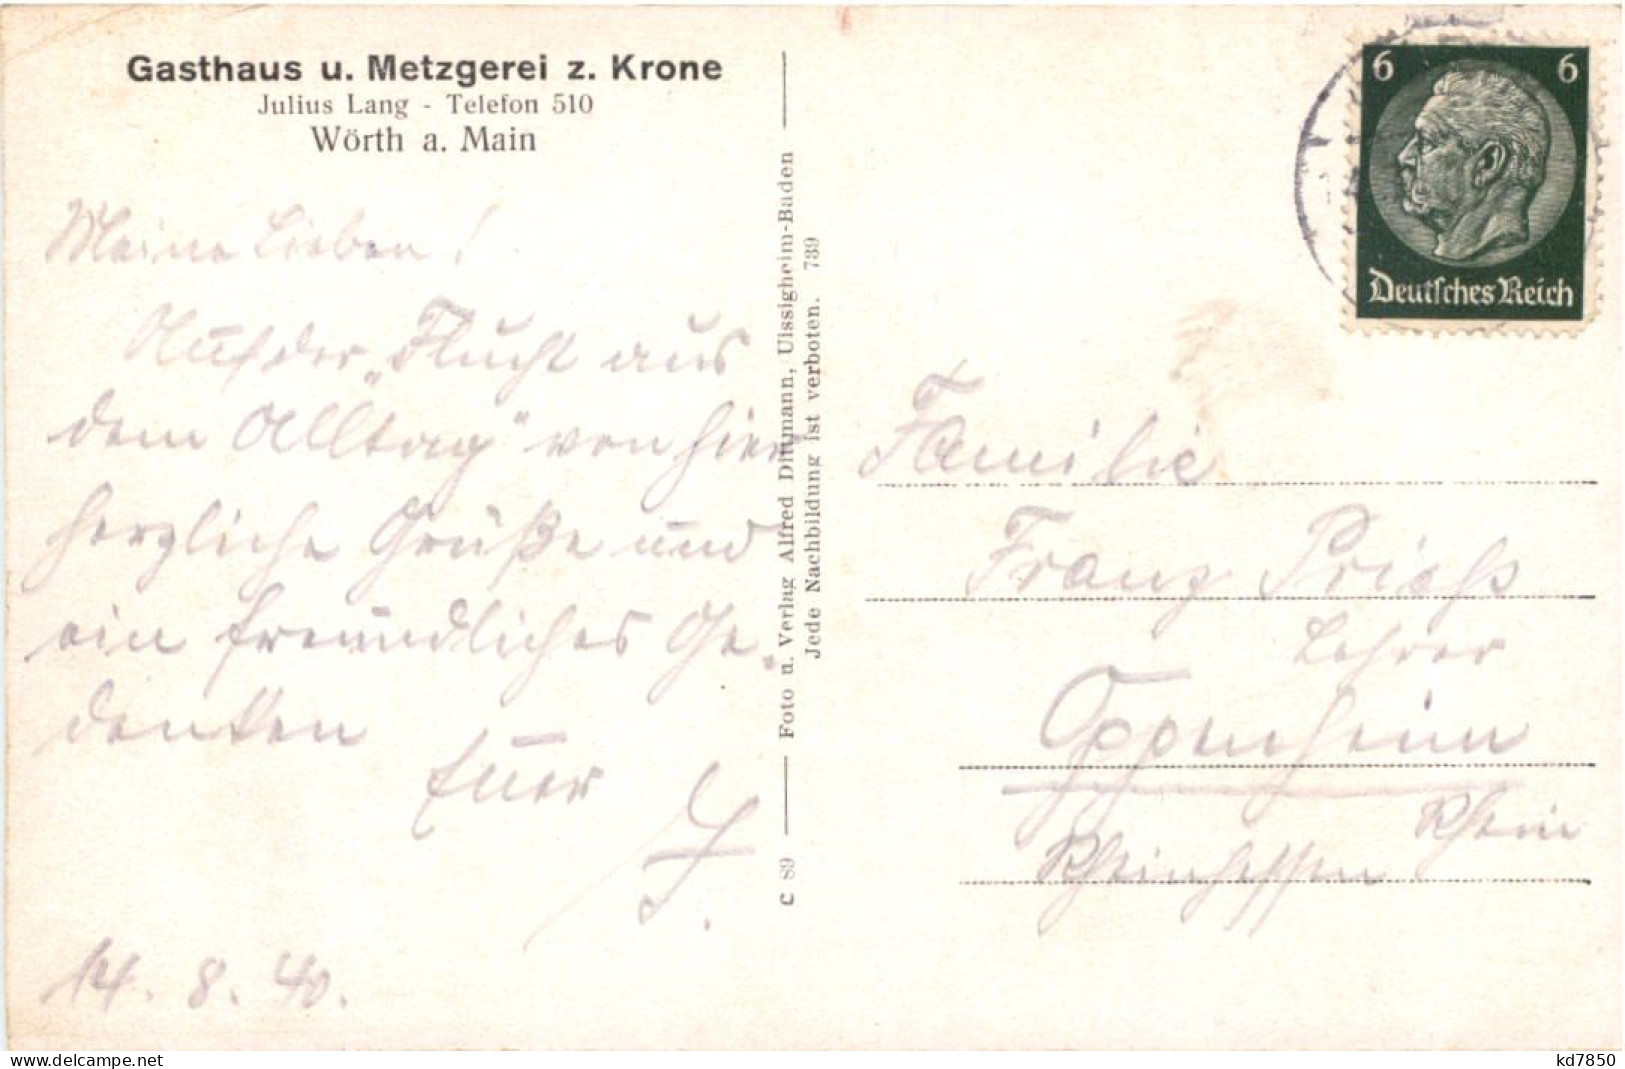 Gasthaus u. Metzgerei z. Krone
Julius Lang - Telefon 510
Wörth a. Main
Meine Lieben!
Auf der „Flucht aus
dem Alltag" von hier
herzliche Grüße und
ein freundliches Ge-
denken
Euer
14. 8. 40.
C 89
Foto u. Verlag Alfred Dittmann, Uissigheim-Baden
Jede Nachbildung ist verboten. 739
6 6
Deutsches Reich
Familie
Franz Prieß
Lehrer
Oppenheim
Rhein
Rheinhessen
www.delcampe.net
kd7850